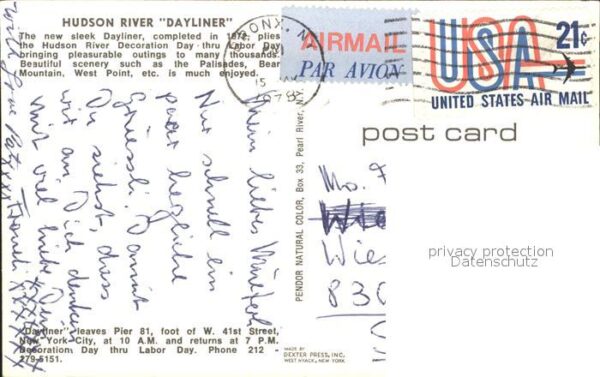 HUDSON RIVER "DAYLINER"
The new sleek Dayliner, completed in 1972, plies
the Hudson River Decoration Day thru Labor Day
bringing pleasurable outings to many thousands.
Beautiful scenery such as the Palisades, Bear
Mountain, West Point, etc. is much enjoyed.
AIRMAIL
PAR AVION
USA
21¢
UNITED STATES AIR MAIL
post card
Mein liebes
Nur schnell ein
paar herzliche
Grüessli. Damit
Du siehst, dass
wir an Dich denken
mit viel Liebe Deine
With Love Pat xxx
PENDOR NATURAL COLOR, Box 33, Pearl River, N.Y.
Wie
830
privacy protection
Datenschutz
"Dayliner" leaves Pier 81, foot of W. 41st Street,
New York City, at 10 A.M. and returns at 7 P.M.
Decoration Day thru Labor Day. Phone 212 -
279-5151.
MADE BY
DEXTER PRESS, INC.
WEST NYACK, NEW YORK